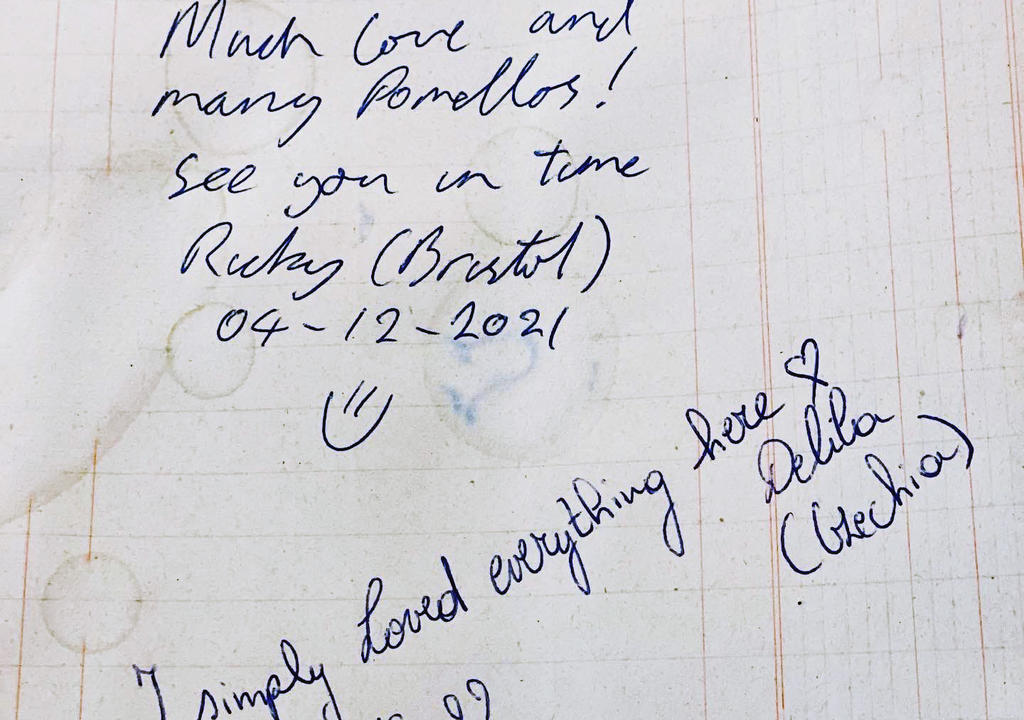 Much love and
many Pomellos!
see you in time
Ricky (Bristol)
04-12-2021
I simply Loved everything here
Deliha
(Czechia)